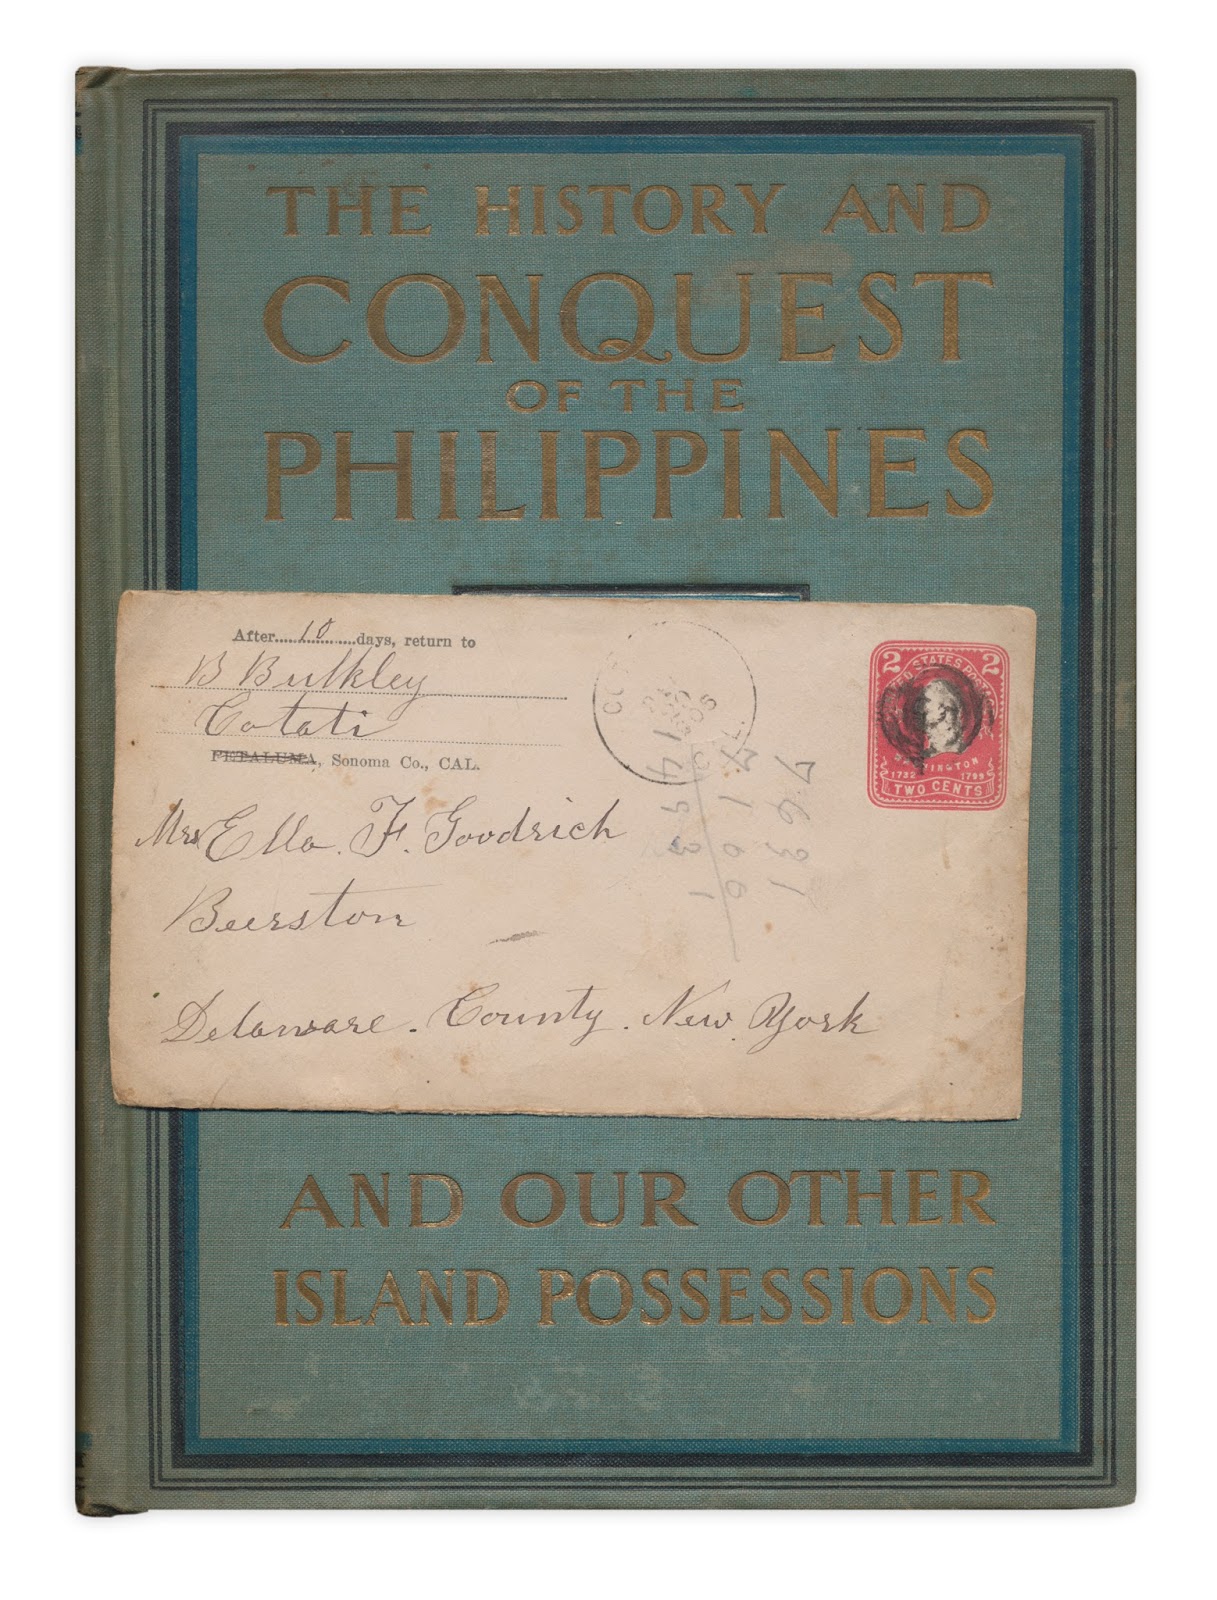 THE HISTORY AND
CONQUEST
OF THE
PHILIPPINES
After.....10.....days, return to
B Bulkley
Cotati
PETALUMA, Sonoma Co., CAL.
2 2
UNITED STATES POSTAGE
WASHINGTON
1732 1799
TWO CENTS
CAL.
Mrs Ella. F. Goodrich
Beerston
Delaware. County. New. York
7631
AND OUR OTHER
ISLAND POSSESSIONS